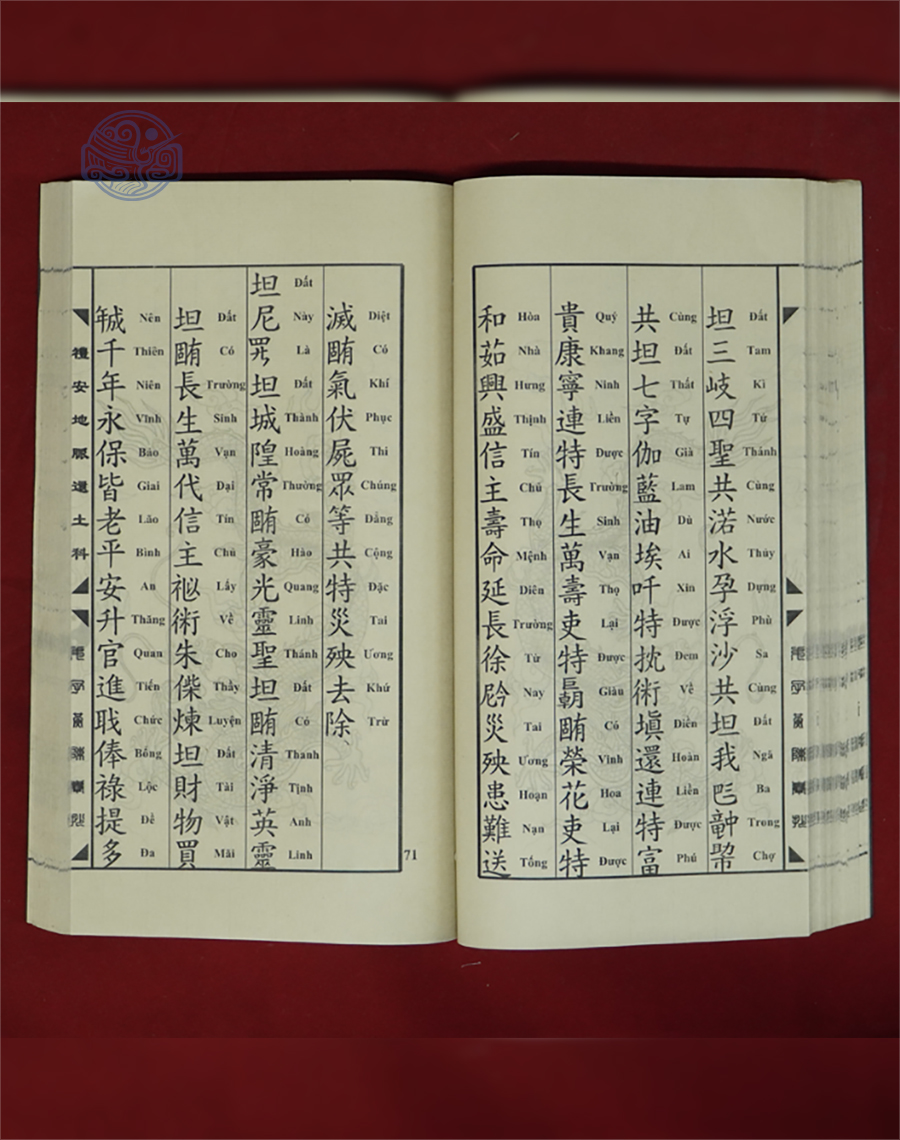 坦三岐四聖共渃水孕浮沙共坦我𠀧𥪝𢄂
Đất Tam Kì Tứ Thánh Cùng Nước Thủy Dựng Phù Sa Cùng Đất Ngã Ba Trong Chợ
共坦七字伽藍油埃吀特抌術塡還連特富
Cùng Đất Thất Tự Già Lam Dù Ai Xin Được Đem Về Điền Hoàn Liền Được Phú
貴康寧連特長生萬壽吏特𢀭𣎏榮花吏特
Quý Khang Ninh Liền Được Trường Sinh Vạn Thọ Lại Được Giàu Có Vinh Hoa Lại Được
和茹興盛信主壽命延長徐𫢩災殃患難送
Hòa Nhà Hưng Thịnh Tín Chủ Thọ Mệnh Diên Trường Từ Nay Tai Ương Hoạn Nạn Tống
滅𣎏氣伏屍眾等共特災殃去除、
Diệt Có Khí Phục Thi Chúng Đẳng Cộng Đặc Tai Ương Khứ Trừ
坦尼𱺵坦城隍常𣎏豪光靈聖坦𣎏清淨英靈
Đất Này Là Đất Thành Hoàng Thường Có Hào Quang Linh Thánh Đất Có Thanh Tịnh Anh Linh
坦𣎏長生萬代信主祕術朱偨煉坦財物買
Đất Có Trường Sinh Vạn Đại Tín Chủ Lấy Về Cho Thầy Luyện Đất Tài Vật Mãi
𢧚千年永保皆老平安升官進職俸祿提多
Nên Thiên Niên Vĩnh Bảo Giai Lão Bình An Thăng Quan Tiến Chức Bổng Lộc Đề Đa
禮安地脈還土科
71